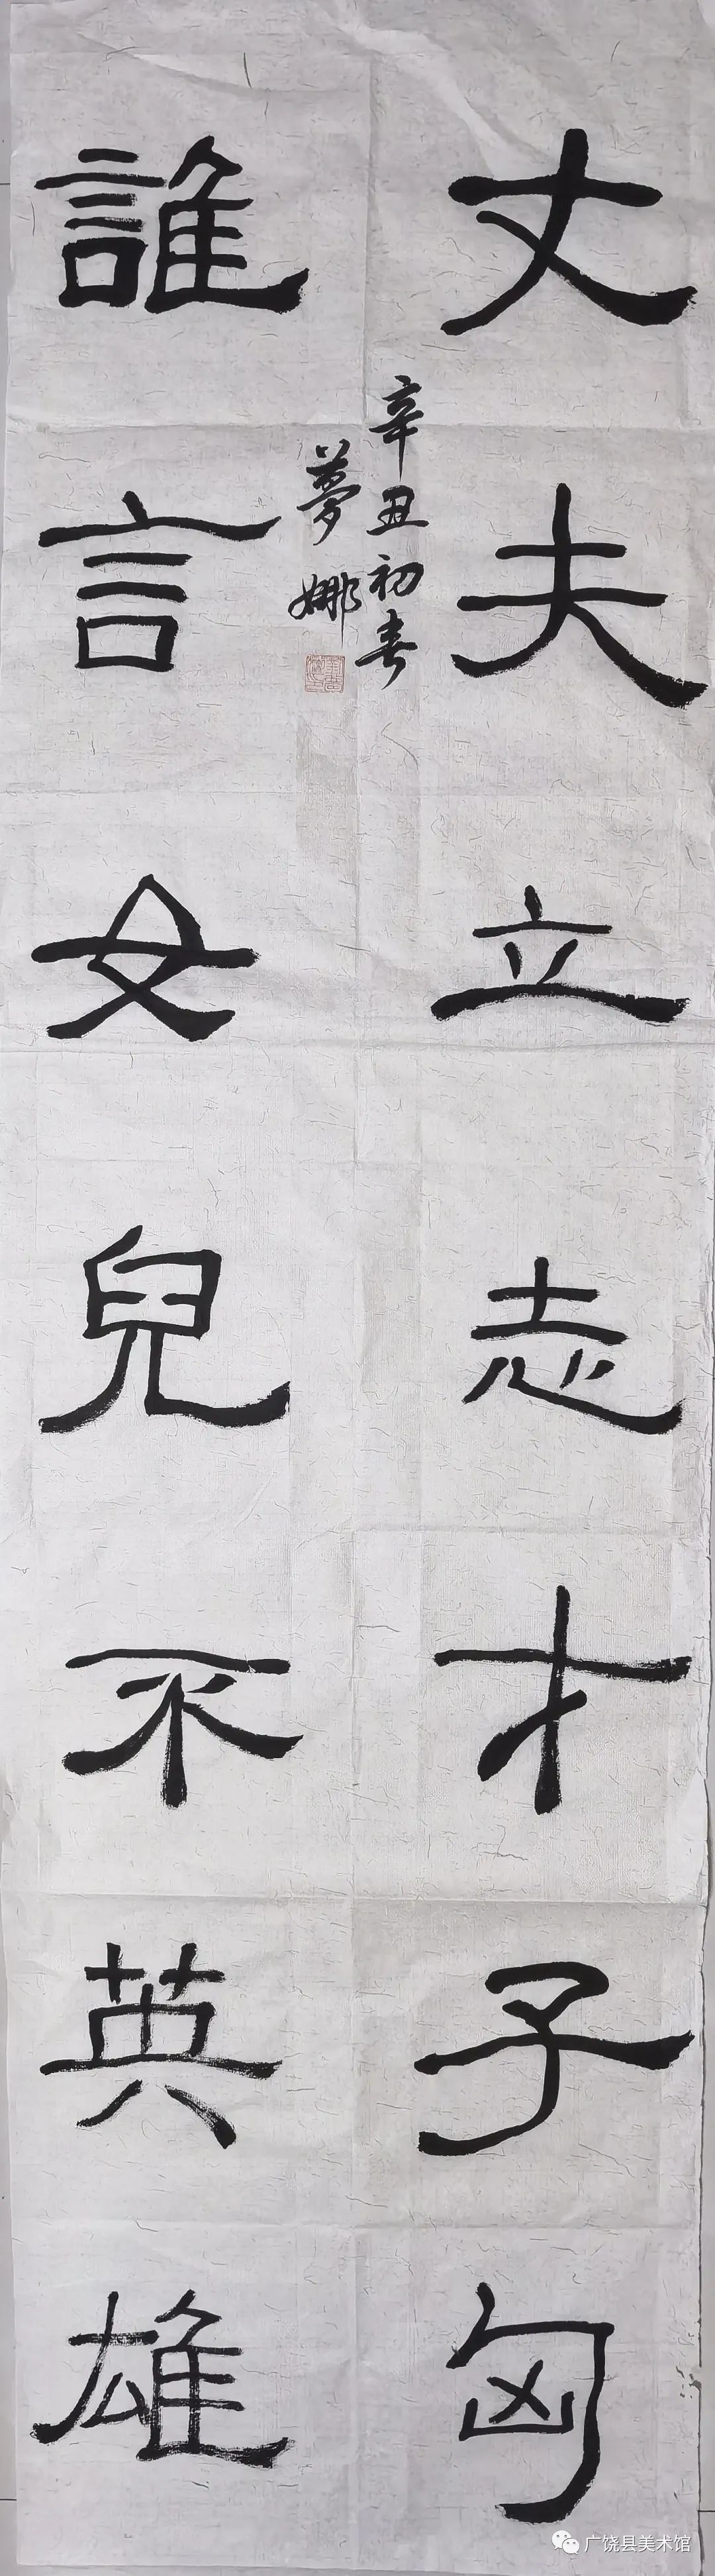 丈夫立志才子匈
誰言女兒不英雄
辛丑初春
夢娜
广饶县美术馆